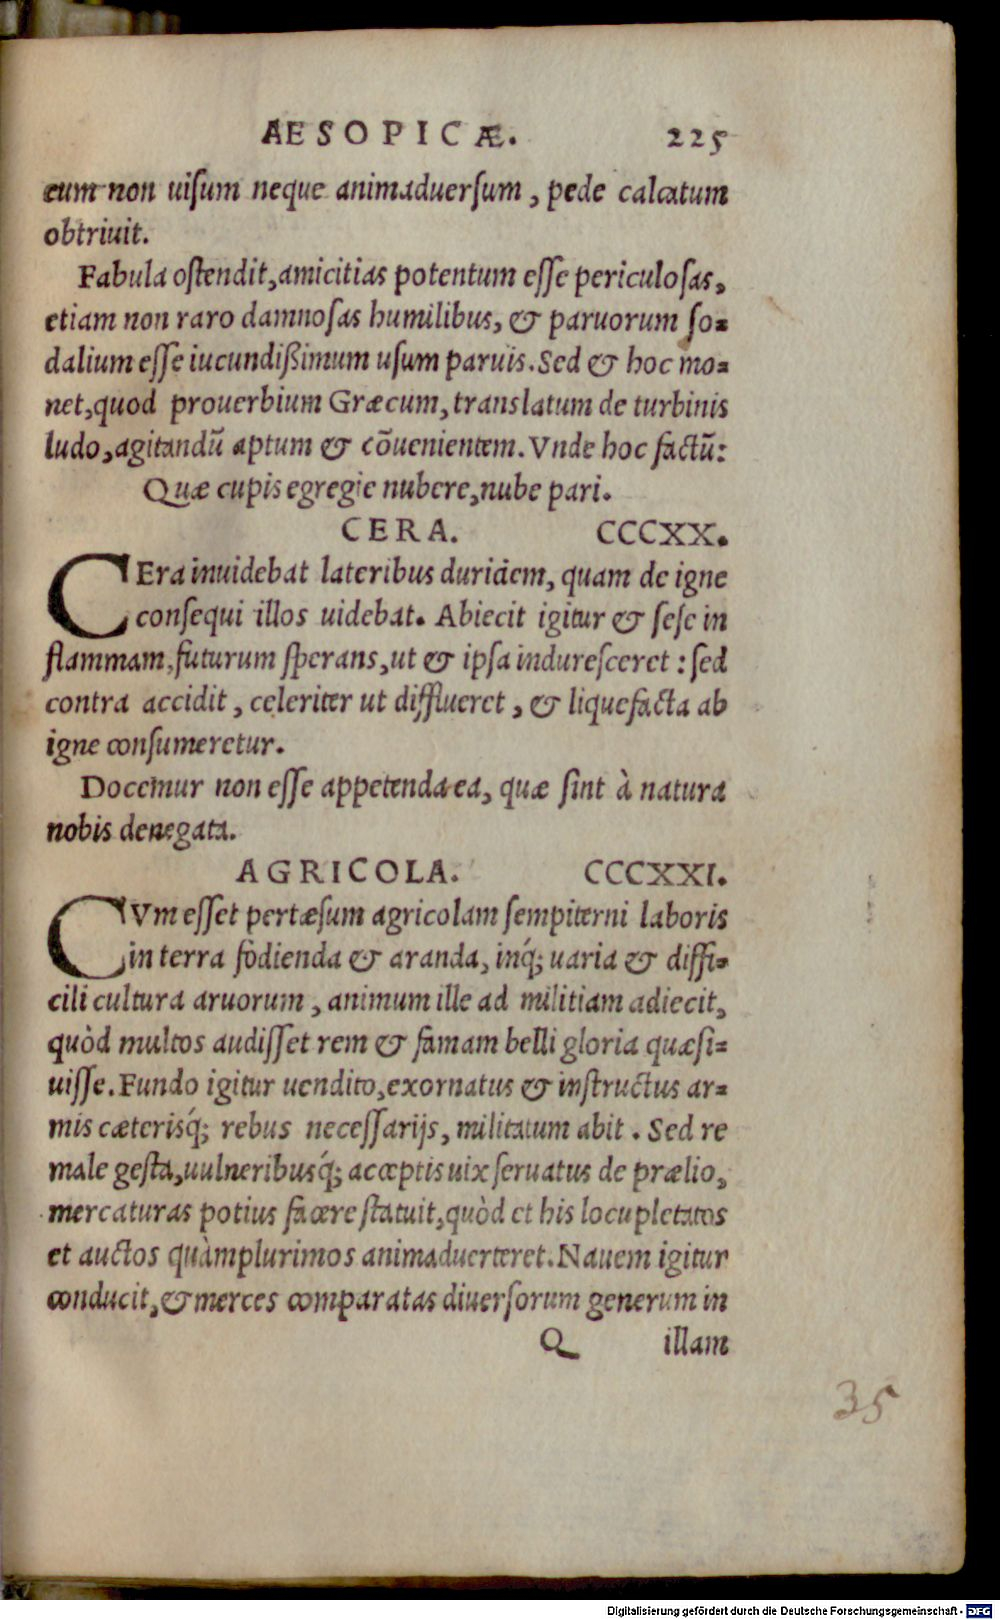 AESOPICÆ. 225
eum non uiſum neque animaduerſum, pede calcatum
obtriuit.
Fabula oſtendit, amicitias potentum eſſe periculoſas,
etiam non raro damnoſas humilibus, & paruorum ſo-
dalium eſſe iucundißimum uſum paruis. Sed & hoc mo-
net, quod prouerbium Græcum, translatum de turbinis
ludo, agitandũ aptum & cõuenientem. Vnde hoc factũ:
Quæ cupis egregie nubere, nube pari.
CERA. CCCXX.
CEra inuidebat lateribus duriciem, quam de igne
conſequi illos uidebat. Abiecit igitur & ſeſe in
flammam, futurum ſperans, ut & ipſa induresceret: ſed
contra accidit, celeriter ut difflueret, & liquefacta ab
igne conſumeretur.
Docemur non eſſe appetenda ea, quæ ſint à natura
nobis denegata.
AGRICOLA. CCCXXI.
CVm eſſet pertæſum agricolam ſempiterni laboris
in terra fodienda & aranda, inq́; uaria & diffi-
cili cultura aruorum, animum ille ad militiam adiecit,
quòd multos audiſſet rem & famam belli gloria quæſi-
uiſſe. Fundo igitur uendito, exornatus & inſtructus ar-
mis cæterisq́; rebus neceſſarijs, militatum abit. Sed re
male geſta, uulneribusq́; acceptis uix ſeruatus de prælio,
mercaturas potius facere ſtatuit, quòd et his locupletatos
et auctos quàmplurimos animaduerteret. Nauem igitur
conducit, & merces comparatas diuerſorum generum in
Q illam
35
Digitalisierung gefördert durch die Deutsche Forschungsgemeinschaft - DFG